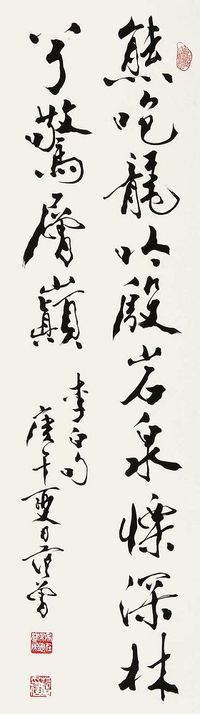 熊咆龙吟殷岩泉慄深林
兮驚層巔
李白句
庚午夏日范曾